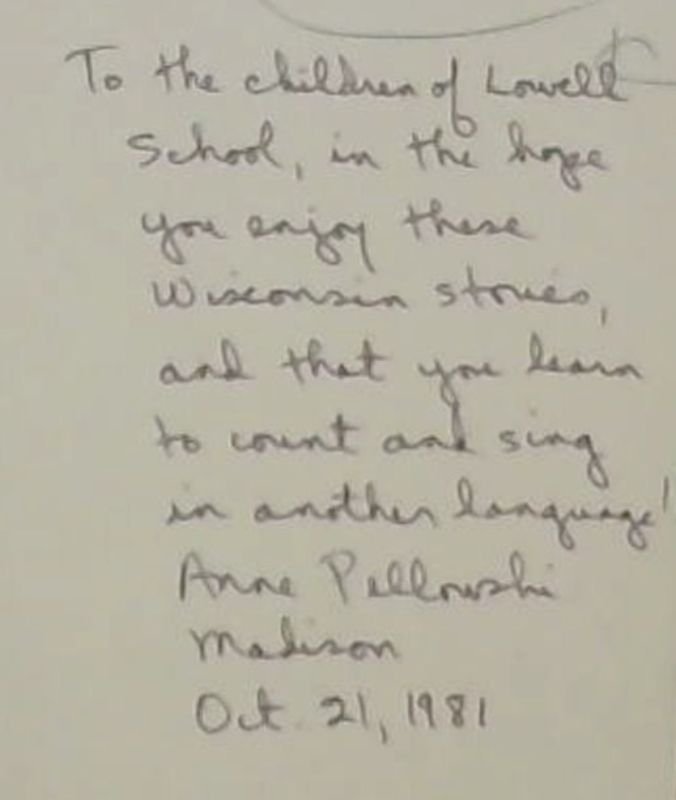 To the children of Lowell
School, in the hope
you enjoy these
Wisconsin stories,
and that you learn
to count and sing
in another language!
Anne Pellowski
Madison
Oct. 21, 1981